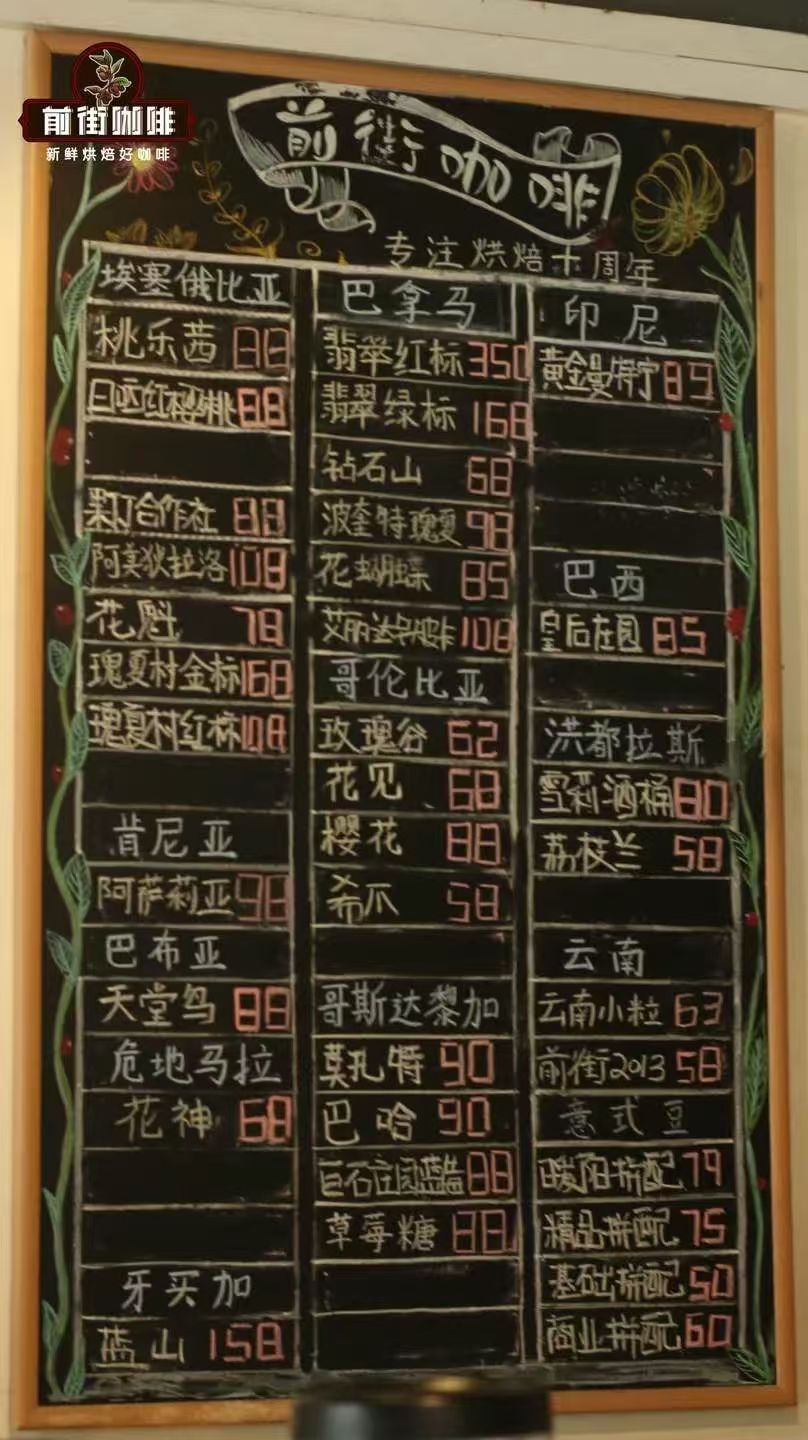 前街咖啡
新鲜烘焙好咖啡
前街咖啡
专注烘焙十周年
埃塞俄比亚
桃乐茜 88
日晒红樱桃 88
果丁合作社 88
阿莫狄拉洛 108
花魁 78
瑰夏村金标 168
瑰夏村红标 108
肯尼亚
阿萨莉亚 98
巴布亚
天堂鸟 88
危地马拉
花神 68
牙买加
蓝山 158
巴拿马
翡翠红标 350
翡翠绿标 168
钻石山 68
波奎特瑰夏 98
花蝴蝶 85
艾丽达 108
哥伦比亚
玫瑰谷 62
花见 68
樱花 88
希爪 58
哥斯达黎加
莫扎特 90
巴哈 90
巨石庄园蓝 88
草莓糖 88
印尼
黄金曼特宁 89
巴西
皇后庄园 85
洪都拉斯
雪莉酒桶 80
荔枝兰 58
云南
云南小粒 63
前街2013 58
意式豆
暖阳拼配 79
精品拼配 75
基础拼配 50
商业拼配 60